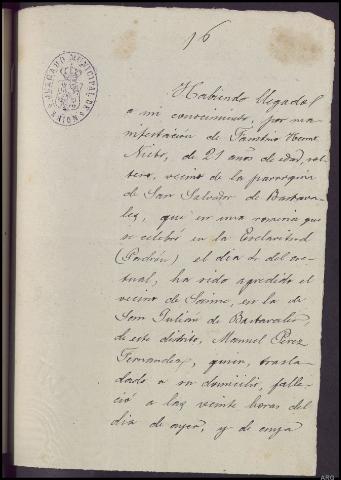 16
JUZGADO MUNICIPAL DE
Habiendo llegado
a mi conocimiento, por ma-
nifestación de Faustino
Nieto, de 21 años de edad, sol-
tero, vecino de la parroquia
de San Salvador de Bastava-
les, que en una romería que
se celebró en la Esclavitud
(Padrón) el día de del ac-
tual, ha sido agredido el
vecino de en la de
San Julián de Bastavales,
de este distrito, Manuel Pérez
Fernández, quien, trasla-
dado a su domicilio, falle-
ció a las veinte horas del
día de ayer, y de cuya
ARG